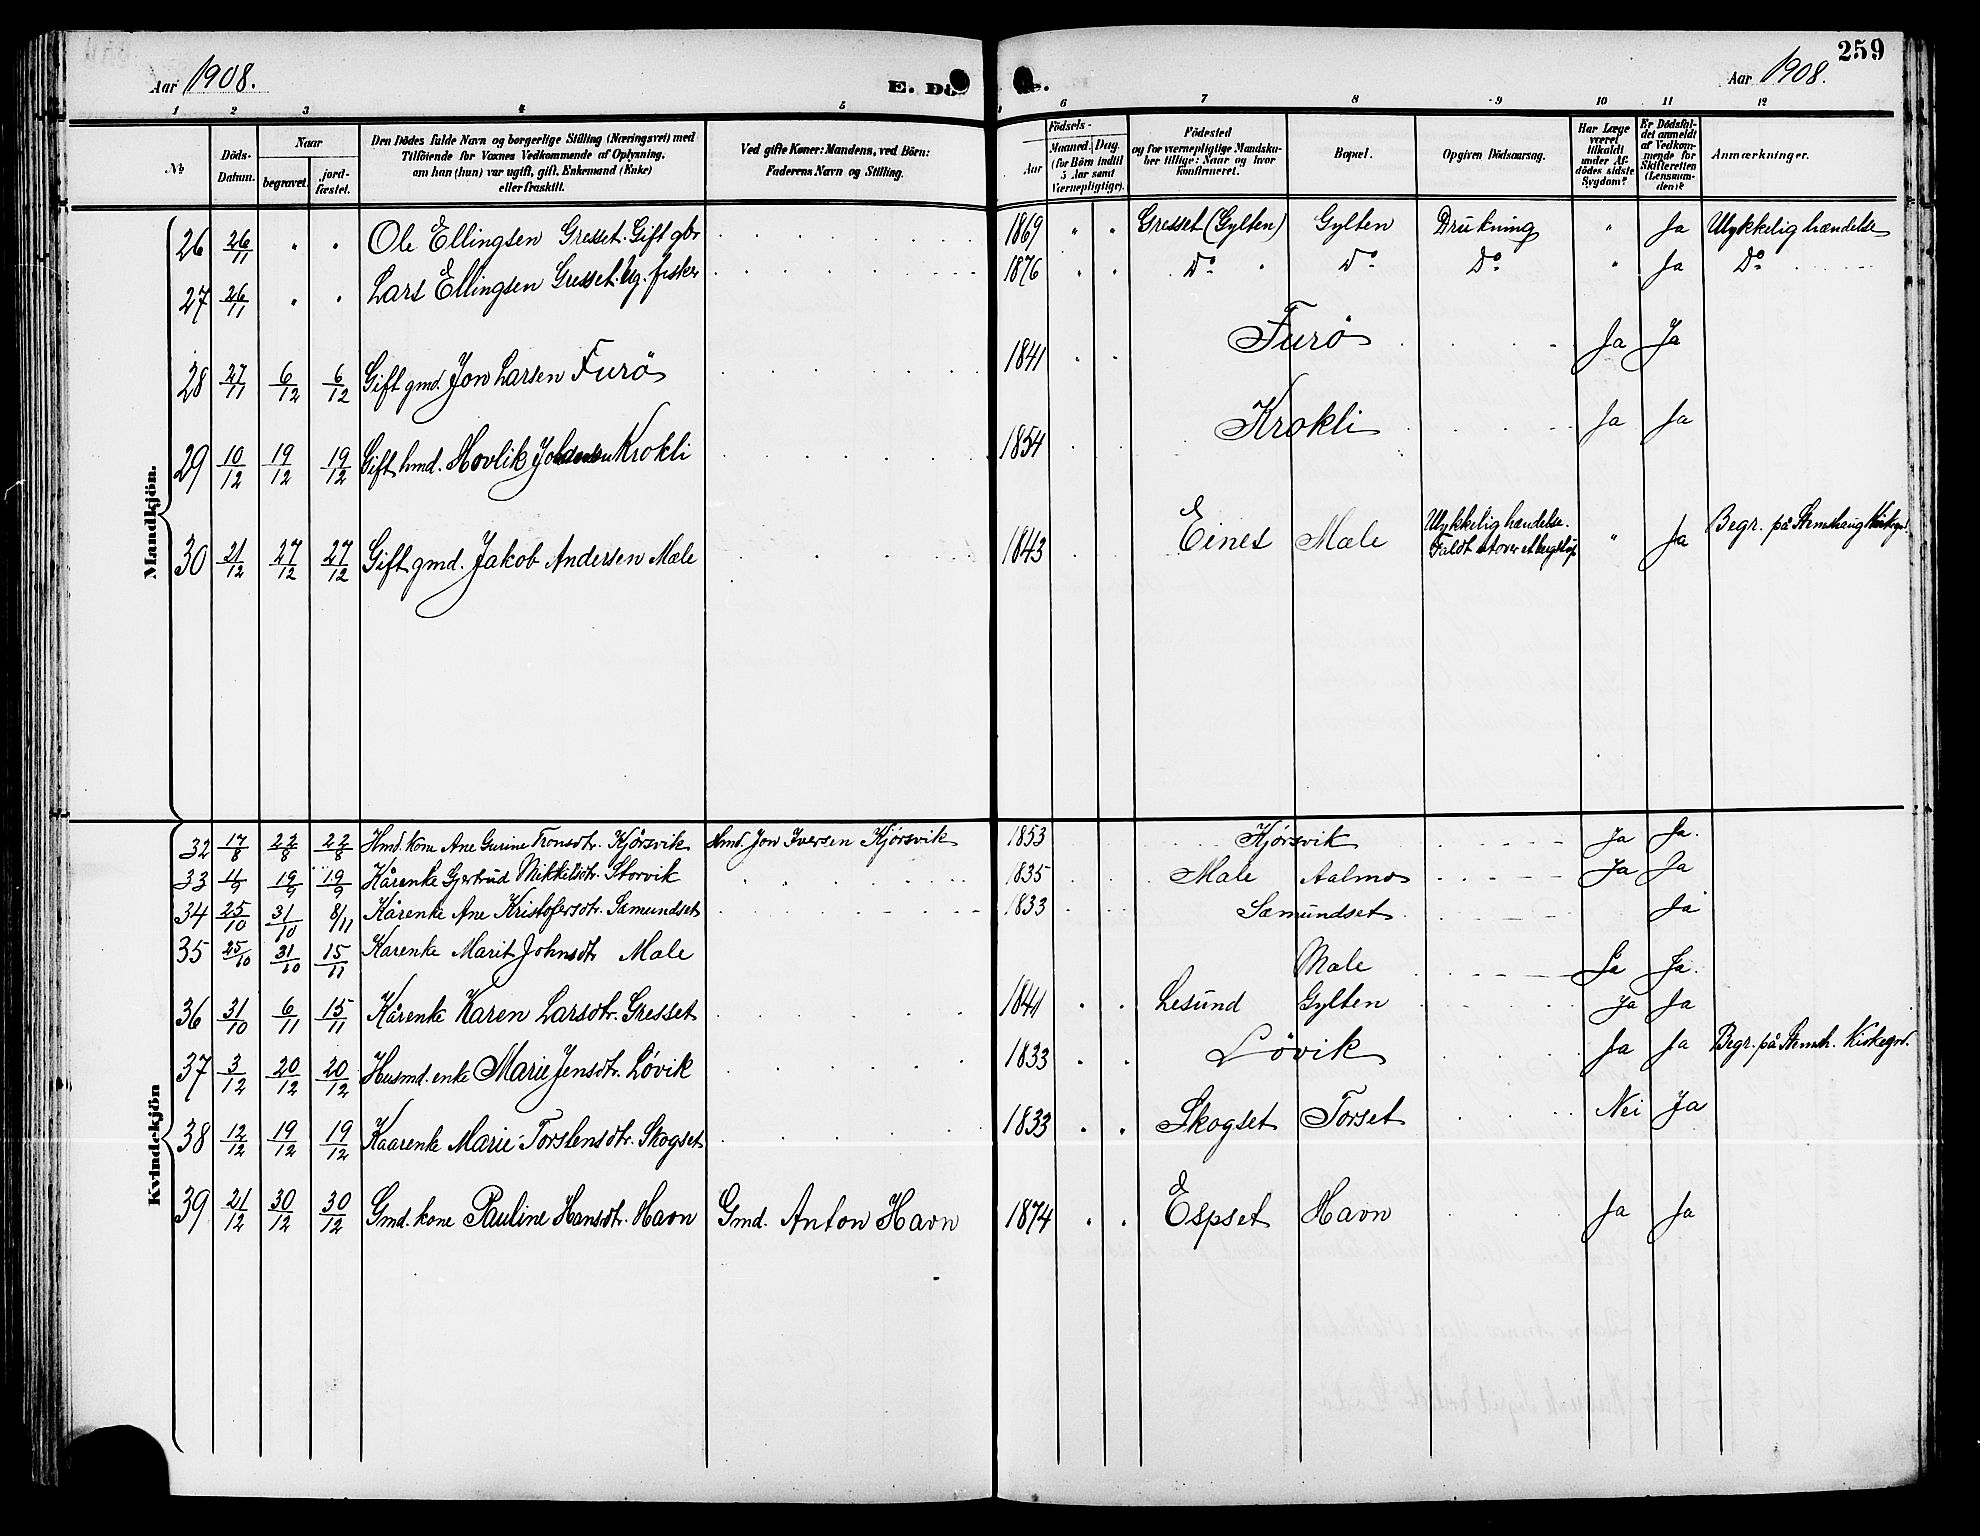 259
Aar 1908. E. Dö Aar 1908.
1 2 3 4 5 6 7 8 9 10 11 12
№ Döds-Datum. Naar begravet. jord-fæstet. Den Dödes fulde Navn og borgerlige Stilling (Næringsvei) med Tilföiende for Voxnes Vedkommende af Oplysning, om han (hun) var ugift, gift, Enkemand (Enke) eller fraskilt. Ved gifte Koner: Mandens, ved Börn: Faderens Navn og Stilling. Födsels- Aar Maaned. Dag. (for Börn indtil 5 Aar samt Værnepligtige). Födested og for værnepligtige Mandskaber tillige: Naar og hvor konfirmeret. Bopæl. Opgiven Dödsaarsag. Har Læge været tilkaldt under Afdödes sidste Sygdom? Er Dödsfaldet anmeldt af Vedkommende for Skifteretten (Lensmanden)? Anmærkninger.
Mandkjön.
26 26/11 " " Ole Ellingsen Gresset. Gift gbr 1869 " " Gresset (Gylten) Gylten Drukning " Ja Ulykkelig hændelse
27 26/11 " " Lars Ellingsen Gresset. Ug. fisker 1876 " " Do " Do Do " Ja Do
28 27/11 6/12 6/12 Gift gmd. Jon Larsen Furö 1841 Furö Ja Ja
29 10/12 19/12 19/12 Gift hmd. Hovlik Krokli 1854 Krokli Ja Ja
30 21/12 27/12 27/12 Gift gmd. Jakob Andersen Mæle 1843 Eines Mæle Ulykkelig hændelse. Faldt utover et " Ja Begr. på Stemshaug
Kvindekjön
32 17/8 22/8 22/8 Hmd. kone Ane Gurine Tronsdtr. Kjörsvik Hmd. Jon Iversen Kjörsvik 1853 Kjörsvik Ja Ja.
33 19/9 19/9 Kårenke Gjertrud Mikkelsdtr. Storvik 1835 Male Aalmo Ja Ja
34 25/10 31/10 8/11 Kårenke Ane Kristofersdtr. Sæmundset 1833 Sæmundset Ja
35 25/10 31/10 15/11 Karenke Marit Johnsdtr Male Male Ja Ja.
36 31/10 6/11 15/11 Kårenke Karen Larsdtr. Gresset 1841 Lesund Gylten Ja Ja
37 3/12 20/12 20/12 Husmd. enke Marie Jensdtr. Lövik 1833 Lövik Ja Ja Begr. på Stemsh. Kirkegrd.
38 12/12 19/12 19/12 Kaarenke Marie Torstensdtr. Skogset 1833 Skogset Torset Nei Ja
39 21/12 30/12 30/12 Gmd. kone Pauline Hansdtr. Havn Gmd. Anton Havn 1874 Espset Havn Ja Ja